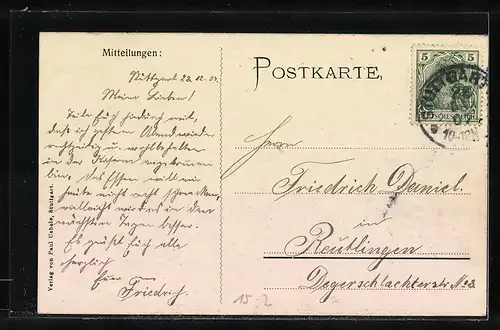 Mitteilungen:
Stuttgart 23.12.07.
Meine Lieben!
Teile Euch hiedurch mit,
daß ich gestern Abend wieder
rechtzeitig u. wohlbehalten
in der Kaserne angekommen
bin. Das Essen will mir
heute nicht recht schmecken,
vielleicht wird es in den
nächsten Tagen besser.
Es grüßt Euch alle
herzlich
Euer
Friedrich.
Verlag von Paul Uebele, Stuttgart.
POSTKARTE.
5 5
DEUTSCHES REICH
STUTTGART
10-12N
Herrn
Friedrich Daniel.
in
Reutlingen
Degerschlachterstr No
15.2